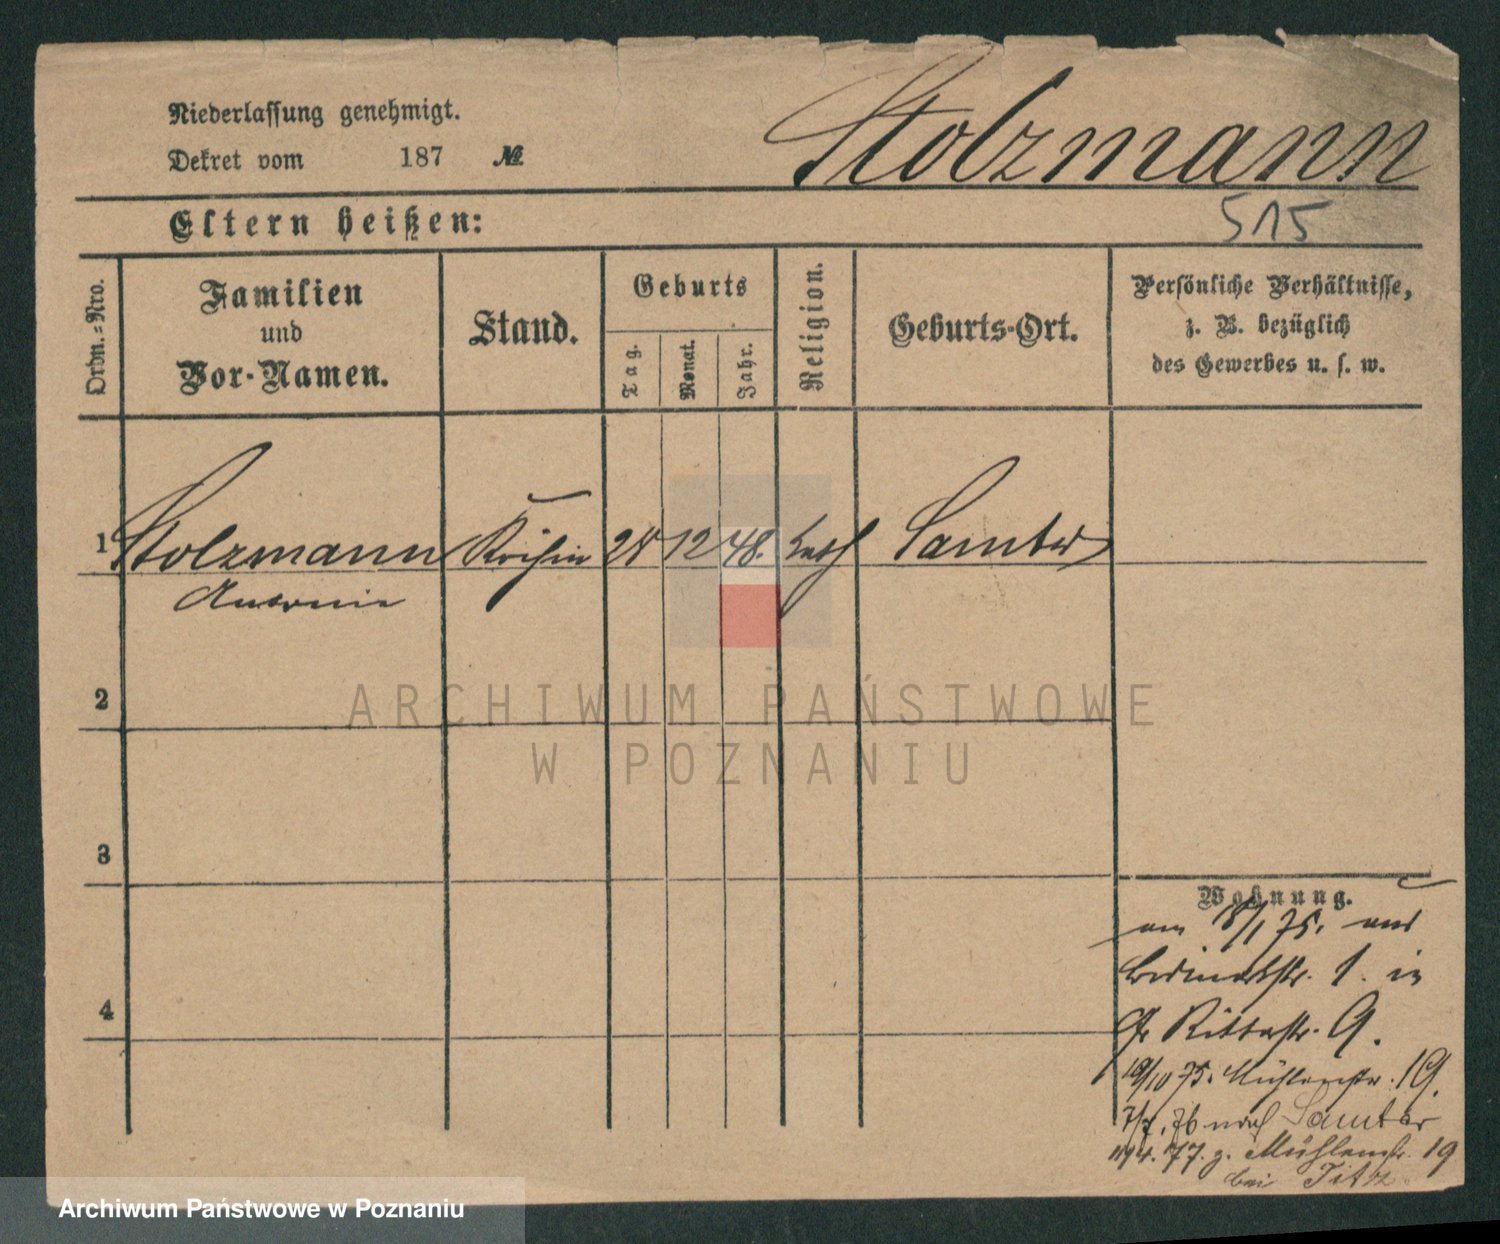 Niederlassung genehmigt.
Dekret vom 187 №
Stolzmann
Eltern heißen:
515
Ordn.-Nro.
Familien
und
Vor-Namen.
Stand.
Geburts
Tag.
Monat.
Jahr.
Religion.
Geburts-Ort.
Persönliche Verhältnisse,
z. B. bezüglich
des Gewerbes u. s. w.
1 Stolzmann Köchin 12 48. kath Samter
Antonie
2
ARCHIWUM PAŃSTWOWE
W POZNANIU
3
4
Wohnung.
am 8/1 75. aus
1. in
gr Ritterstr. 9.
19/10 75. Mühlenstr. 19.
7/7. 76 nach Samter
77. z. Mühlenstr. 19
bei Titz
Archiwum Państwowe w Poznaniu